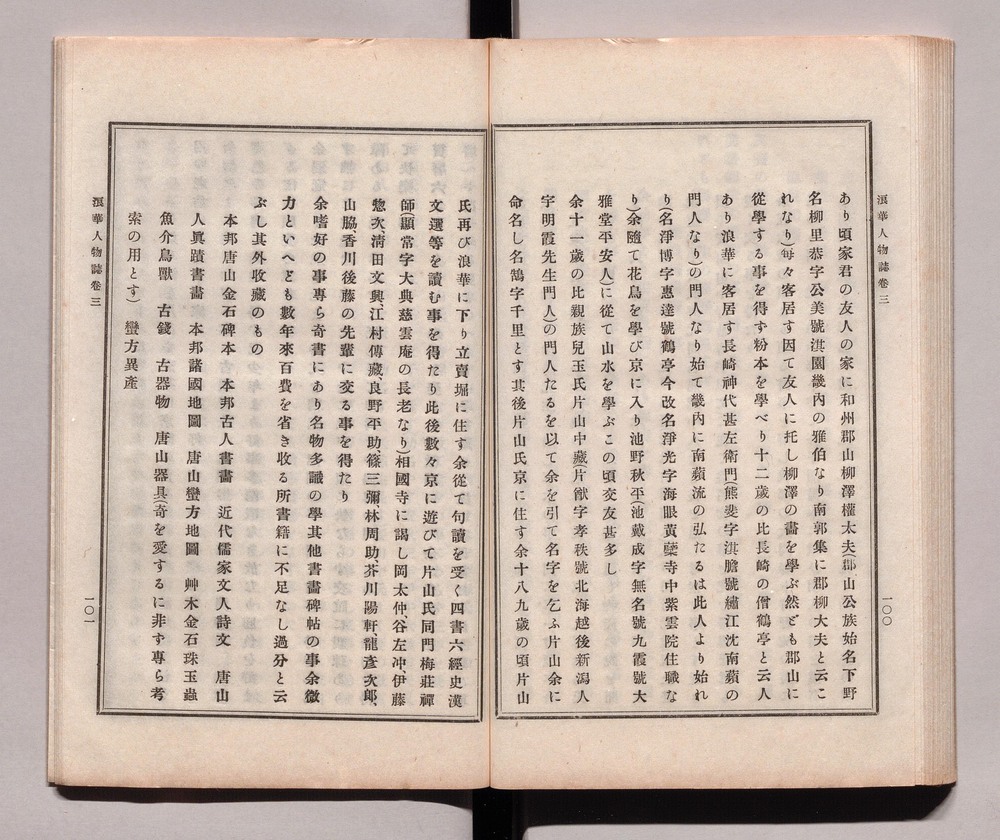 浪華人物誌卷三
一〇〇
あり頃家君の友人の家に和州郡山柳澤權太夫(郡山公族始名下野
名柳里恭字公美號淇園畿內の雅伯なり南郭集に郡柳大夫と云こ
れなり)每々客居す因て友人に托し柳澤の畫を學ぶ然ども郡山に
從學する事を得ず粉本を學べり十二歲の比長崎の僧鶴亭と云人
あり浪華に客居す長崎神代甚左衞門(熊斐字淇膽號繡江沈南蘋の
門人なり)の門人なり始て畿內に南蘋流の弘たるは此人より始れ
り(名淨博字惠達號鶴亭今改名淨光字海眼黃檗寺中紫雲院住職な
り)余隨て花鳥を學び京に入り池野秋平(池戴成字無名號九霞號大
雅堂平安人)に從て山水を學ぶこの頃交友甚多し
余十一歲の比親族兒玉氏片山中藏(片猷字孝秩號北海越後新潟人
字明霞先生門人)の門人たるを以て余を引て名字を乞ふ片山余に
命名し名鵠字千里とす其後片山氏京に住す余十八九歲の頃片山
氏再び浪華に下り立賣堀に住す余從て句讀を受く四書六經史漢
文選等を讀む事を得たり此後數々京に遊びて片山氏同門梅莊禪
師(顯常字大典慈雲庵の長老なり)相國寺に謁し岡太仲、谷左冲、伊藤
惣次、清田文興、江村傳藏、良野平助、篠三彌林周助芥川陽軒、龍彥次郎、
山脇、香川後藤の先輩に交る事を得たり
余嗜好の事專ら奇書にあり名物多識の學其他書畫碑帖の事余微
力といへども數年來百費を省き收る所書籍に不足なし過分と云
ぶし其外收藏のもの
本邦唐山金石碑本　本邦古人書畫　近代儒家文人詩文　唐山
人眞蹟書畫　本邦諸國地圖　唐山蠻方地圖　艸木金石珠玉蟲
魚介鳥獸　古錢　古器物　唐山器具(奇を愛するに非ず專ら考
索の用とす)　蠻方異產
浪華人物誌卷三
一〇一